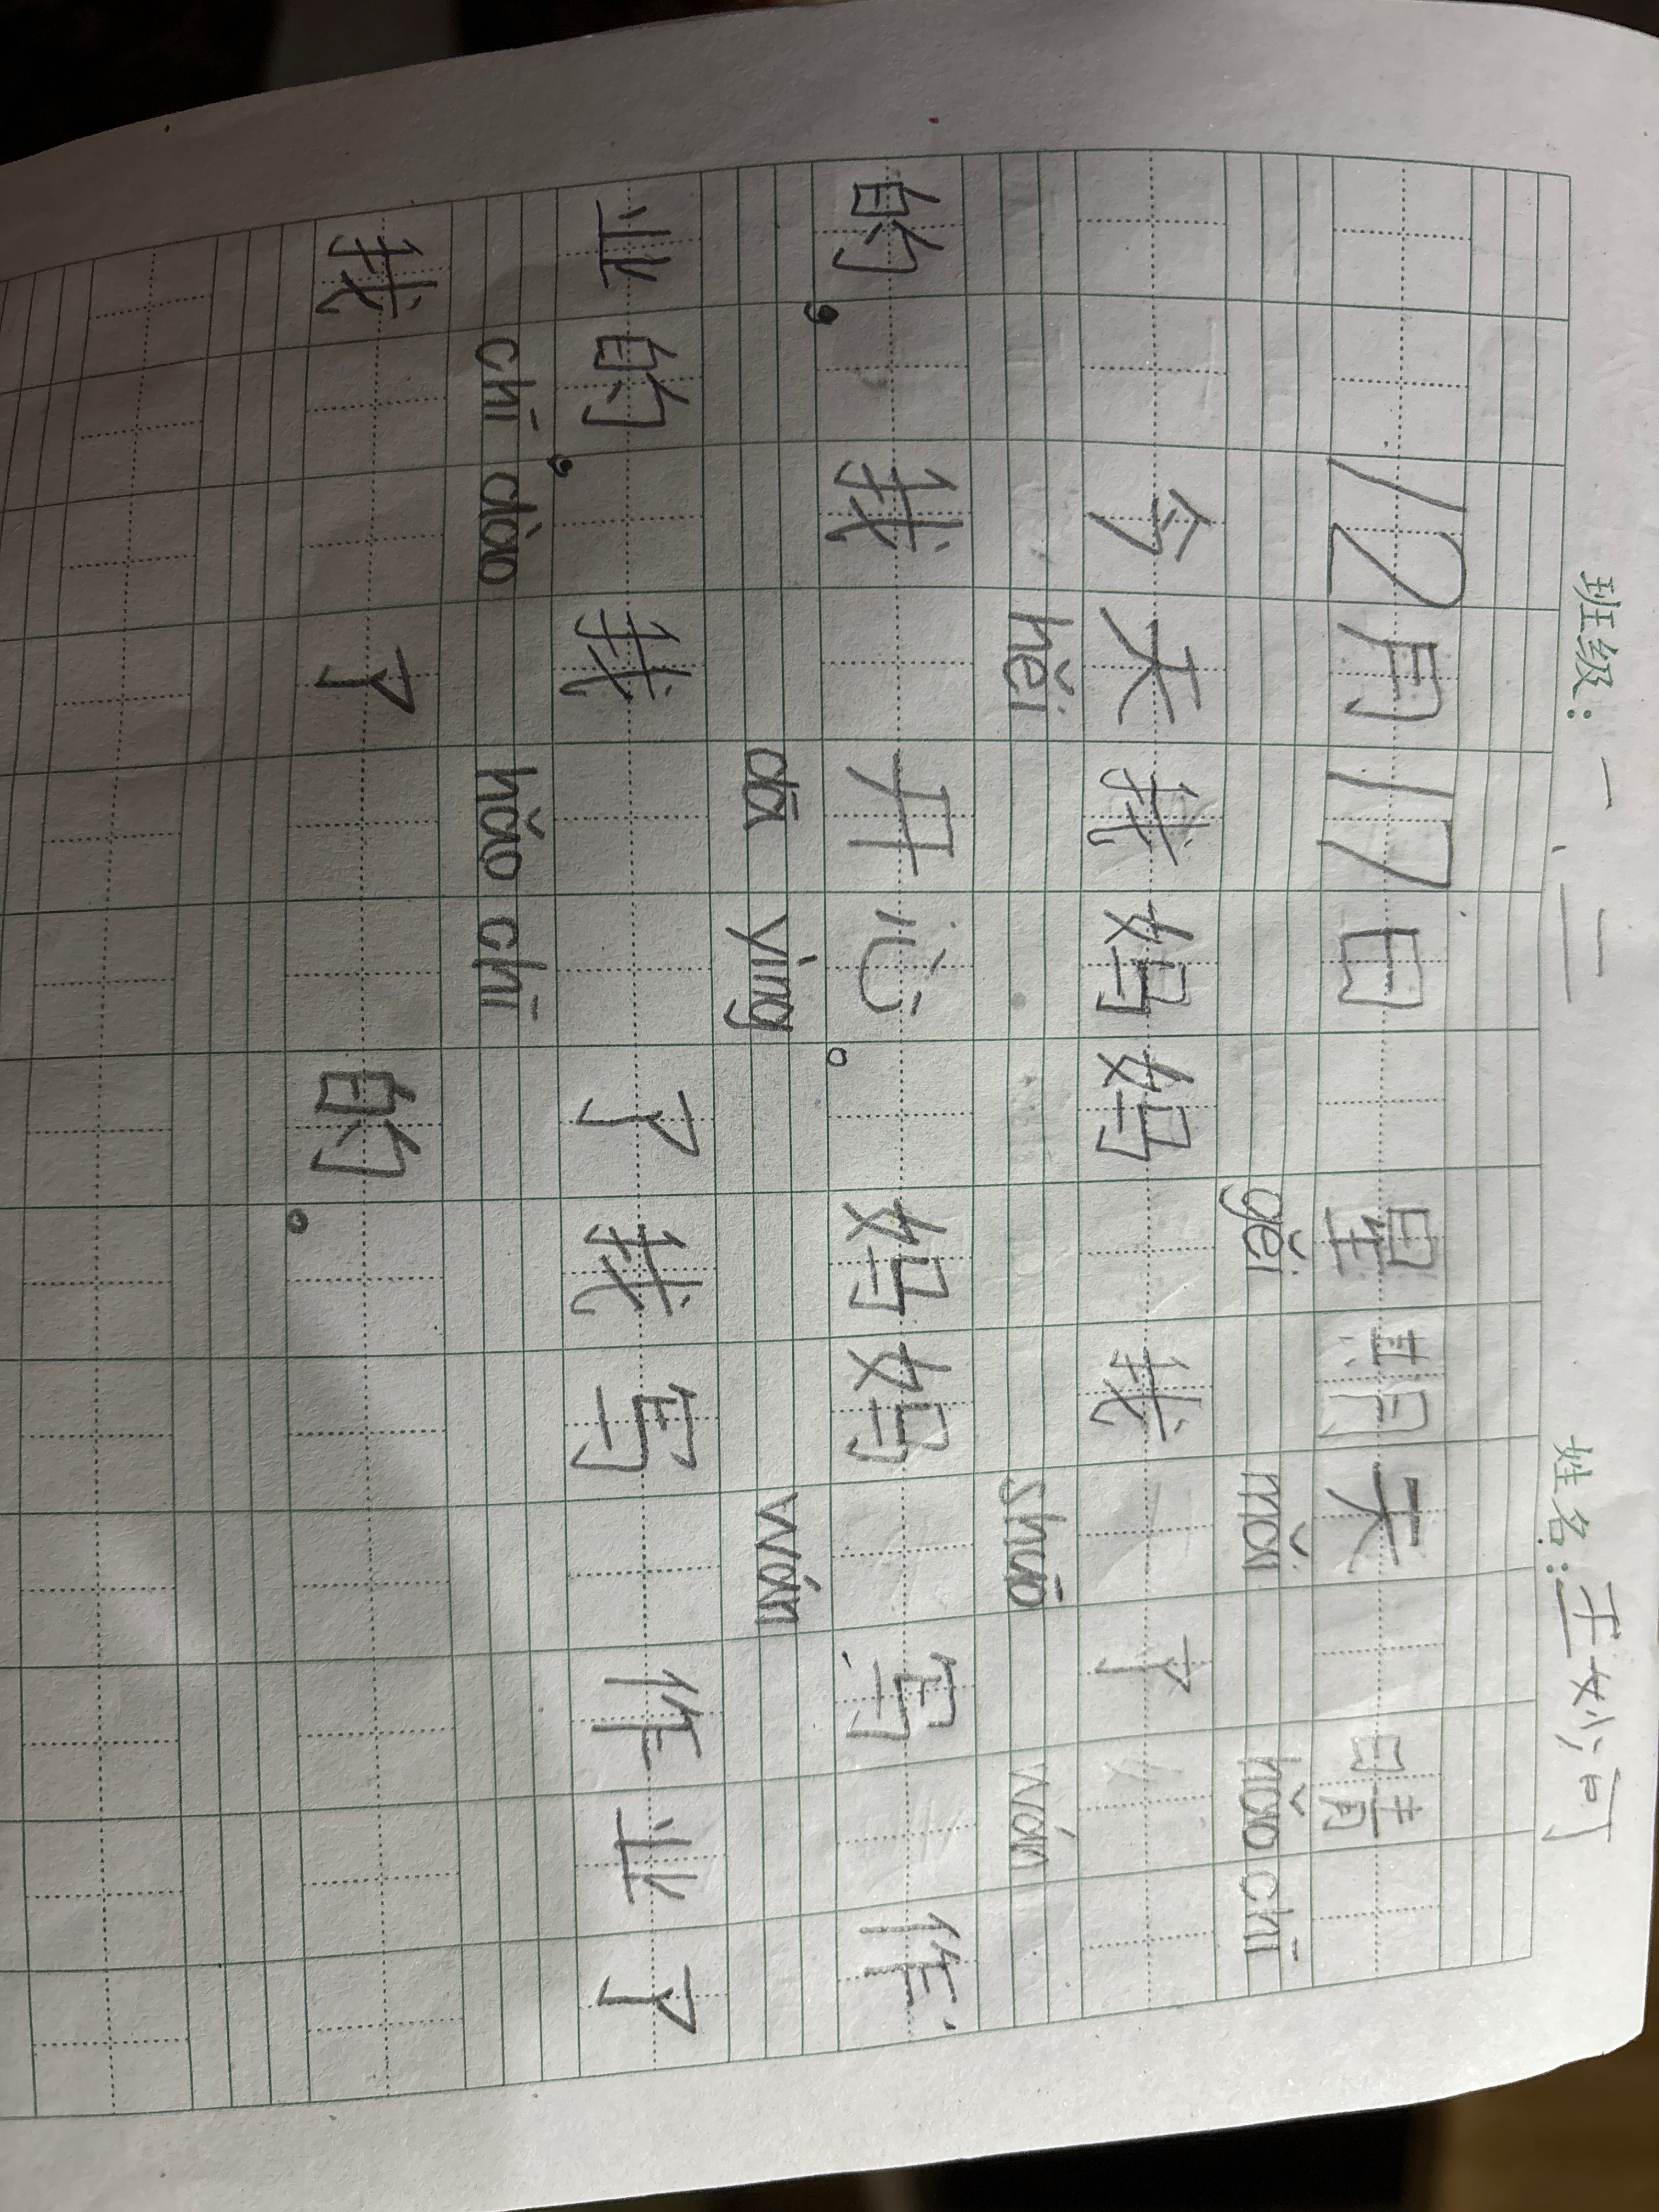 班级：一、二 姓名：王妙可
12月17日 星期天 晴
gěi mǎi hǎo chī
今天我妈妈 我 了
hěi shuō wán
的，我 开心。妈妈 写 作
dā yìng wán
业的，我 了我写 作业了
chī dào hǎo chī
我 了 的。